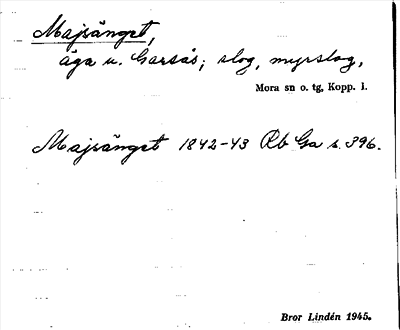 Majsänget,
äga u. Garsås; slog, myrslog,
Mora sn o. tg, Kopp. l.
Majsänget 1842-43 Rb Ga s. 396.
Bror Lindén 1945.